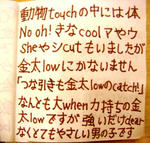 動物touchの中には体
No oh!きなcoolアやウ
SheやシcutもいましたがI
金太lowにかないません
「つな引きも金太lowのcatch!」
なんとも大when力持ちの金
太lowですが強いだけdear
なくとてもやさしい男の子です